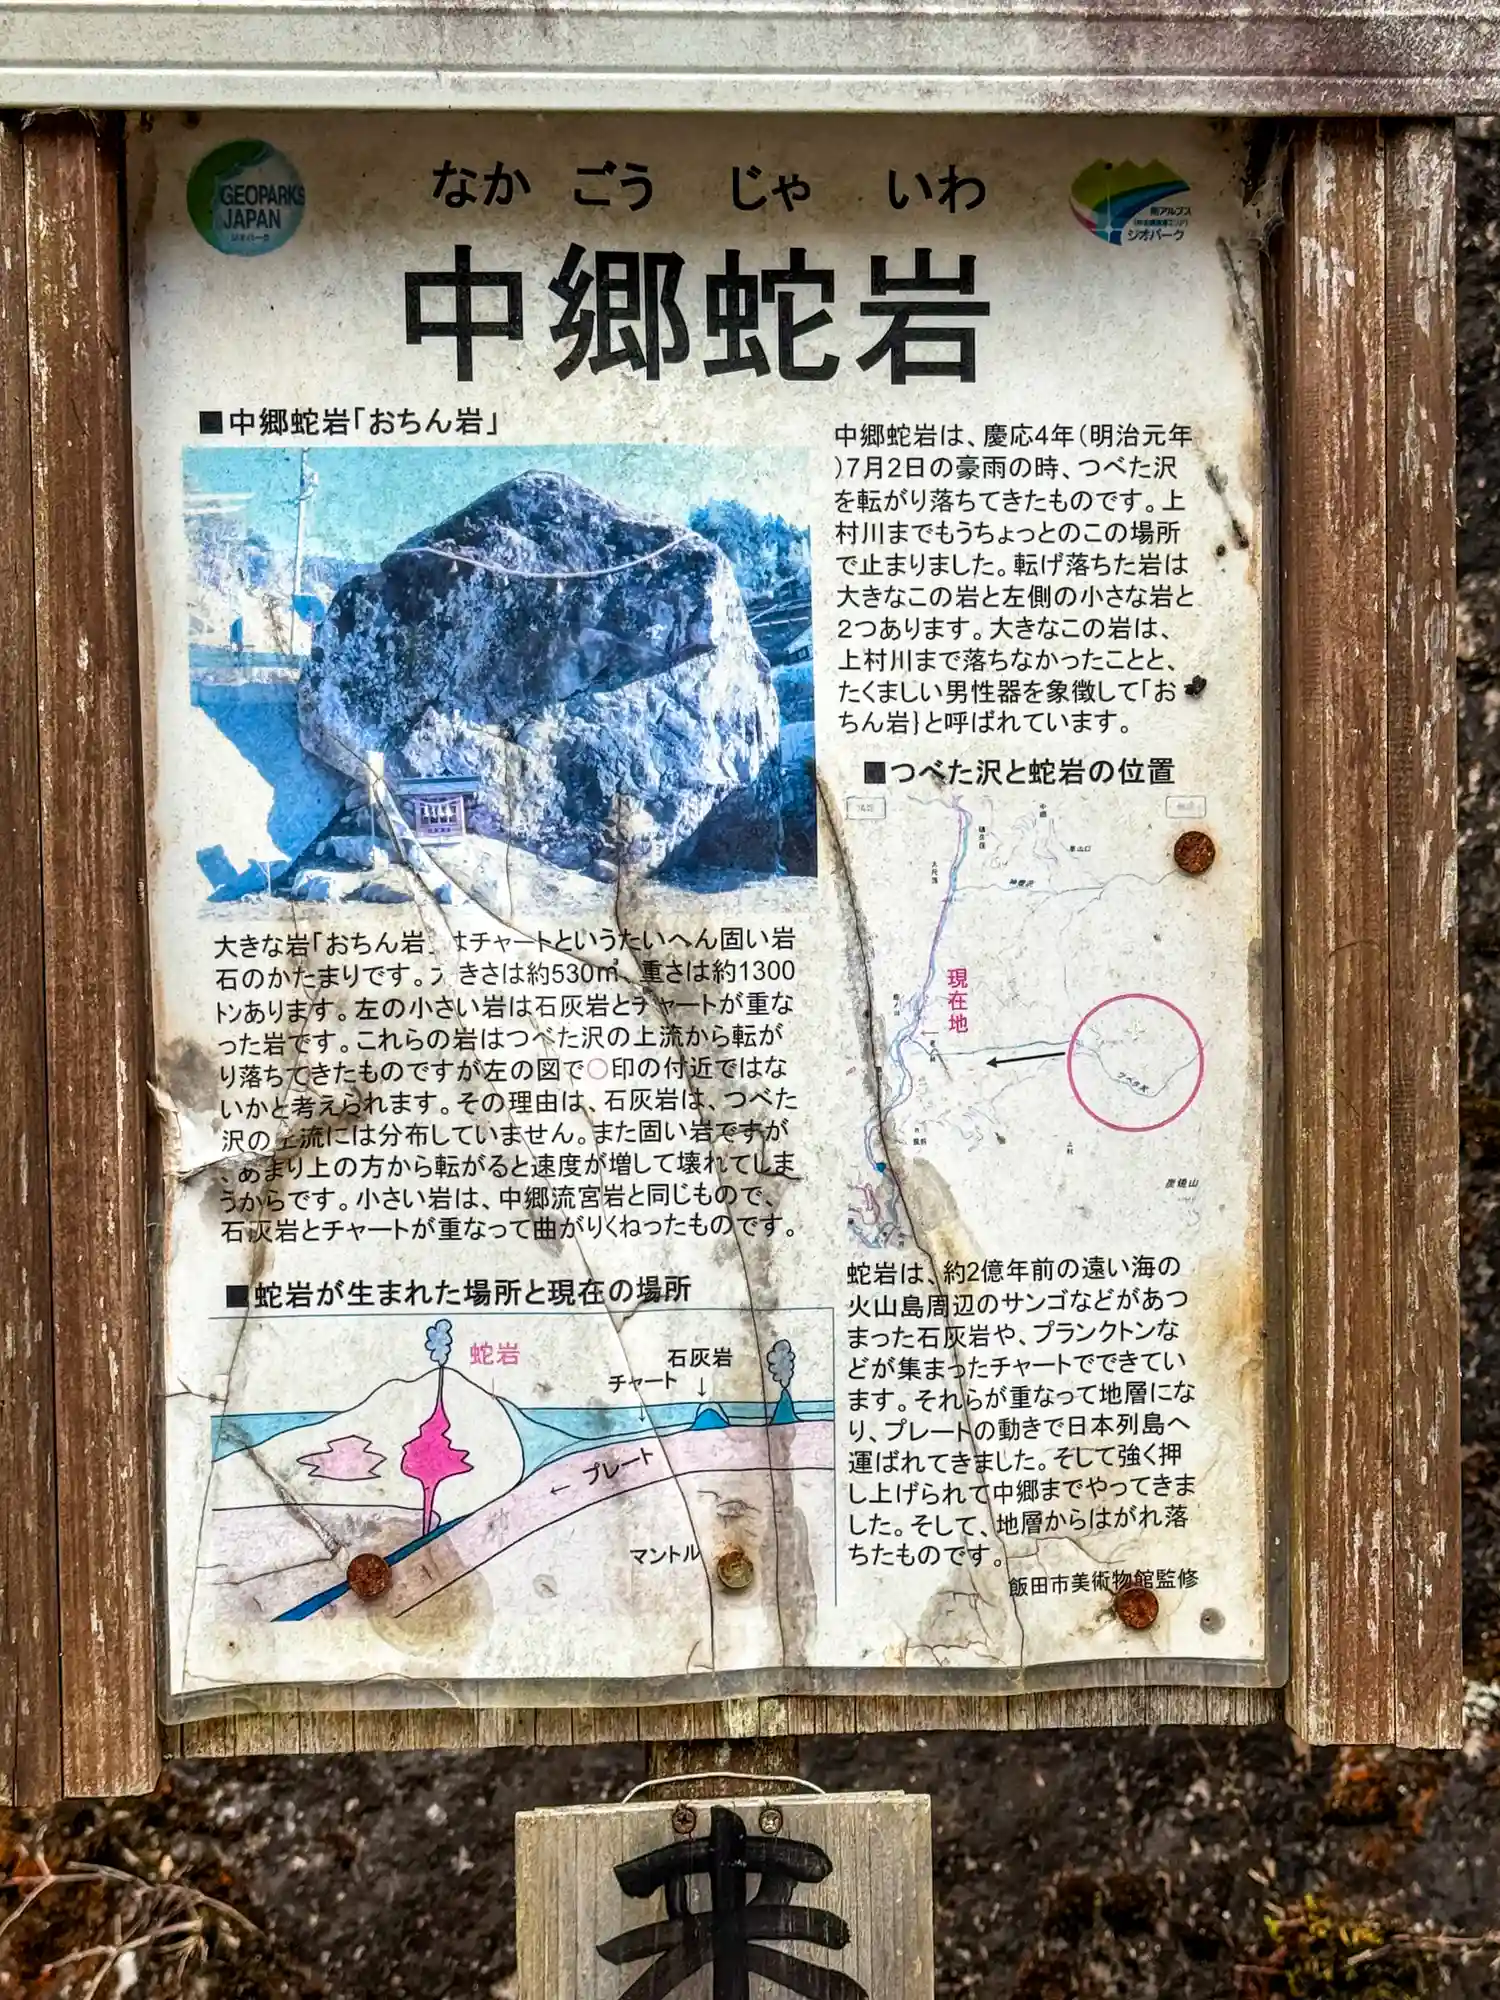 GEOPARKS
JAPAN
ジオパーク
南アルプス
ジオパーク
なか ごう じゃ いわ
中郷蛇岩
■中郷蛇岩「おちん岩」
中郷蛇岩は、慶応4年(明治元年
)7月2日の豪雨の時、つべた沢
を転がり落ちてきたものです。上
村川までもうちょっとのこの場所
で止まりました。転げ落ちた岩は
大きなこの岩と左側の小さな岩と
2つあります。大きなこの岩は、
上村川まで落ちなかったことと、
たくましい男性器を象徴して「お
ちん岩}と呼ばれています。
大きな岩「おちん岩」はチャートというたいへん固い岩
石のかたまりです。大きさは約530㎥、重さは約1300
トンあります。左の小さい岩は石灰岩とチャートが重な
った岩です。これらの岩はつべた沢の上流から転が
り落ちてきたものですが左の図で○印の付近ではな
いかと考えられます。その理由は、石灰岩は、つべた
沢の上流には分布していません。また固い岩ですが
、あまり上の方から転がると速度が増して壊れてしま
うからです。小さい岩は、中郷流宮岩と同じもので、
石灰岩とチャートが重なって曲がりくねったものです。
■つべた沢と蛇岩の位置
現在地
■蛇岩が生まれた場所と現在の場所
蛇岩
石灰岩
チャート
プレート
マントル
蛇岩は、約2億年前の遠い海の
火山島周辺のサンゴなどがあつ
まった石灰岩や、プランクトンな
どが集まったチャートでできてい
ます。それらが重なって地層にな
り、プレートの動きで日本列島へ
運ばれてきました。そして強く押
し上げられて中郷までやってきま
した。そして、地層からはがれ落
ちたものです。
飯田市美術物館監修
来